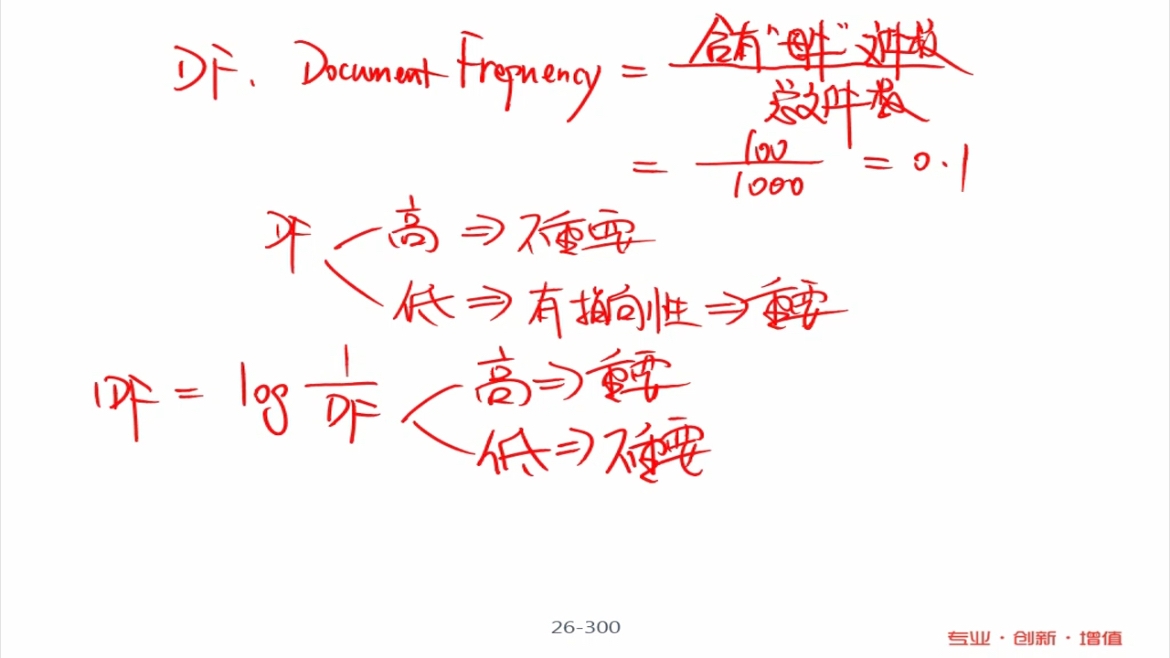 DF. Document Frequency = 含有“母牛”文件数
总文件数
= 100
1000
= 0.1
DF
高 ⇒ 不重要
低 ⇒ 有指向性 ⇒ 重要
IDF = log 1
DF
高 ⇒ 重要
低 ⇒ 不重要
26-300
专业·创新·增值